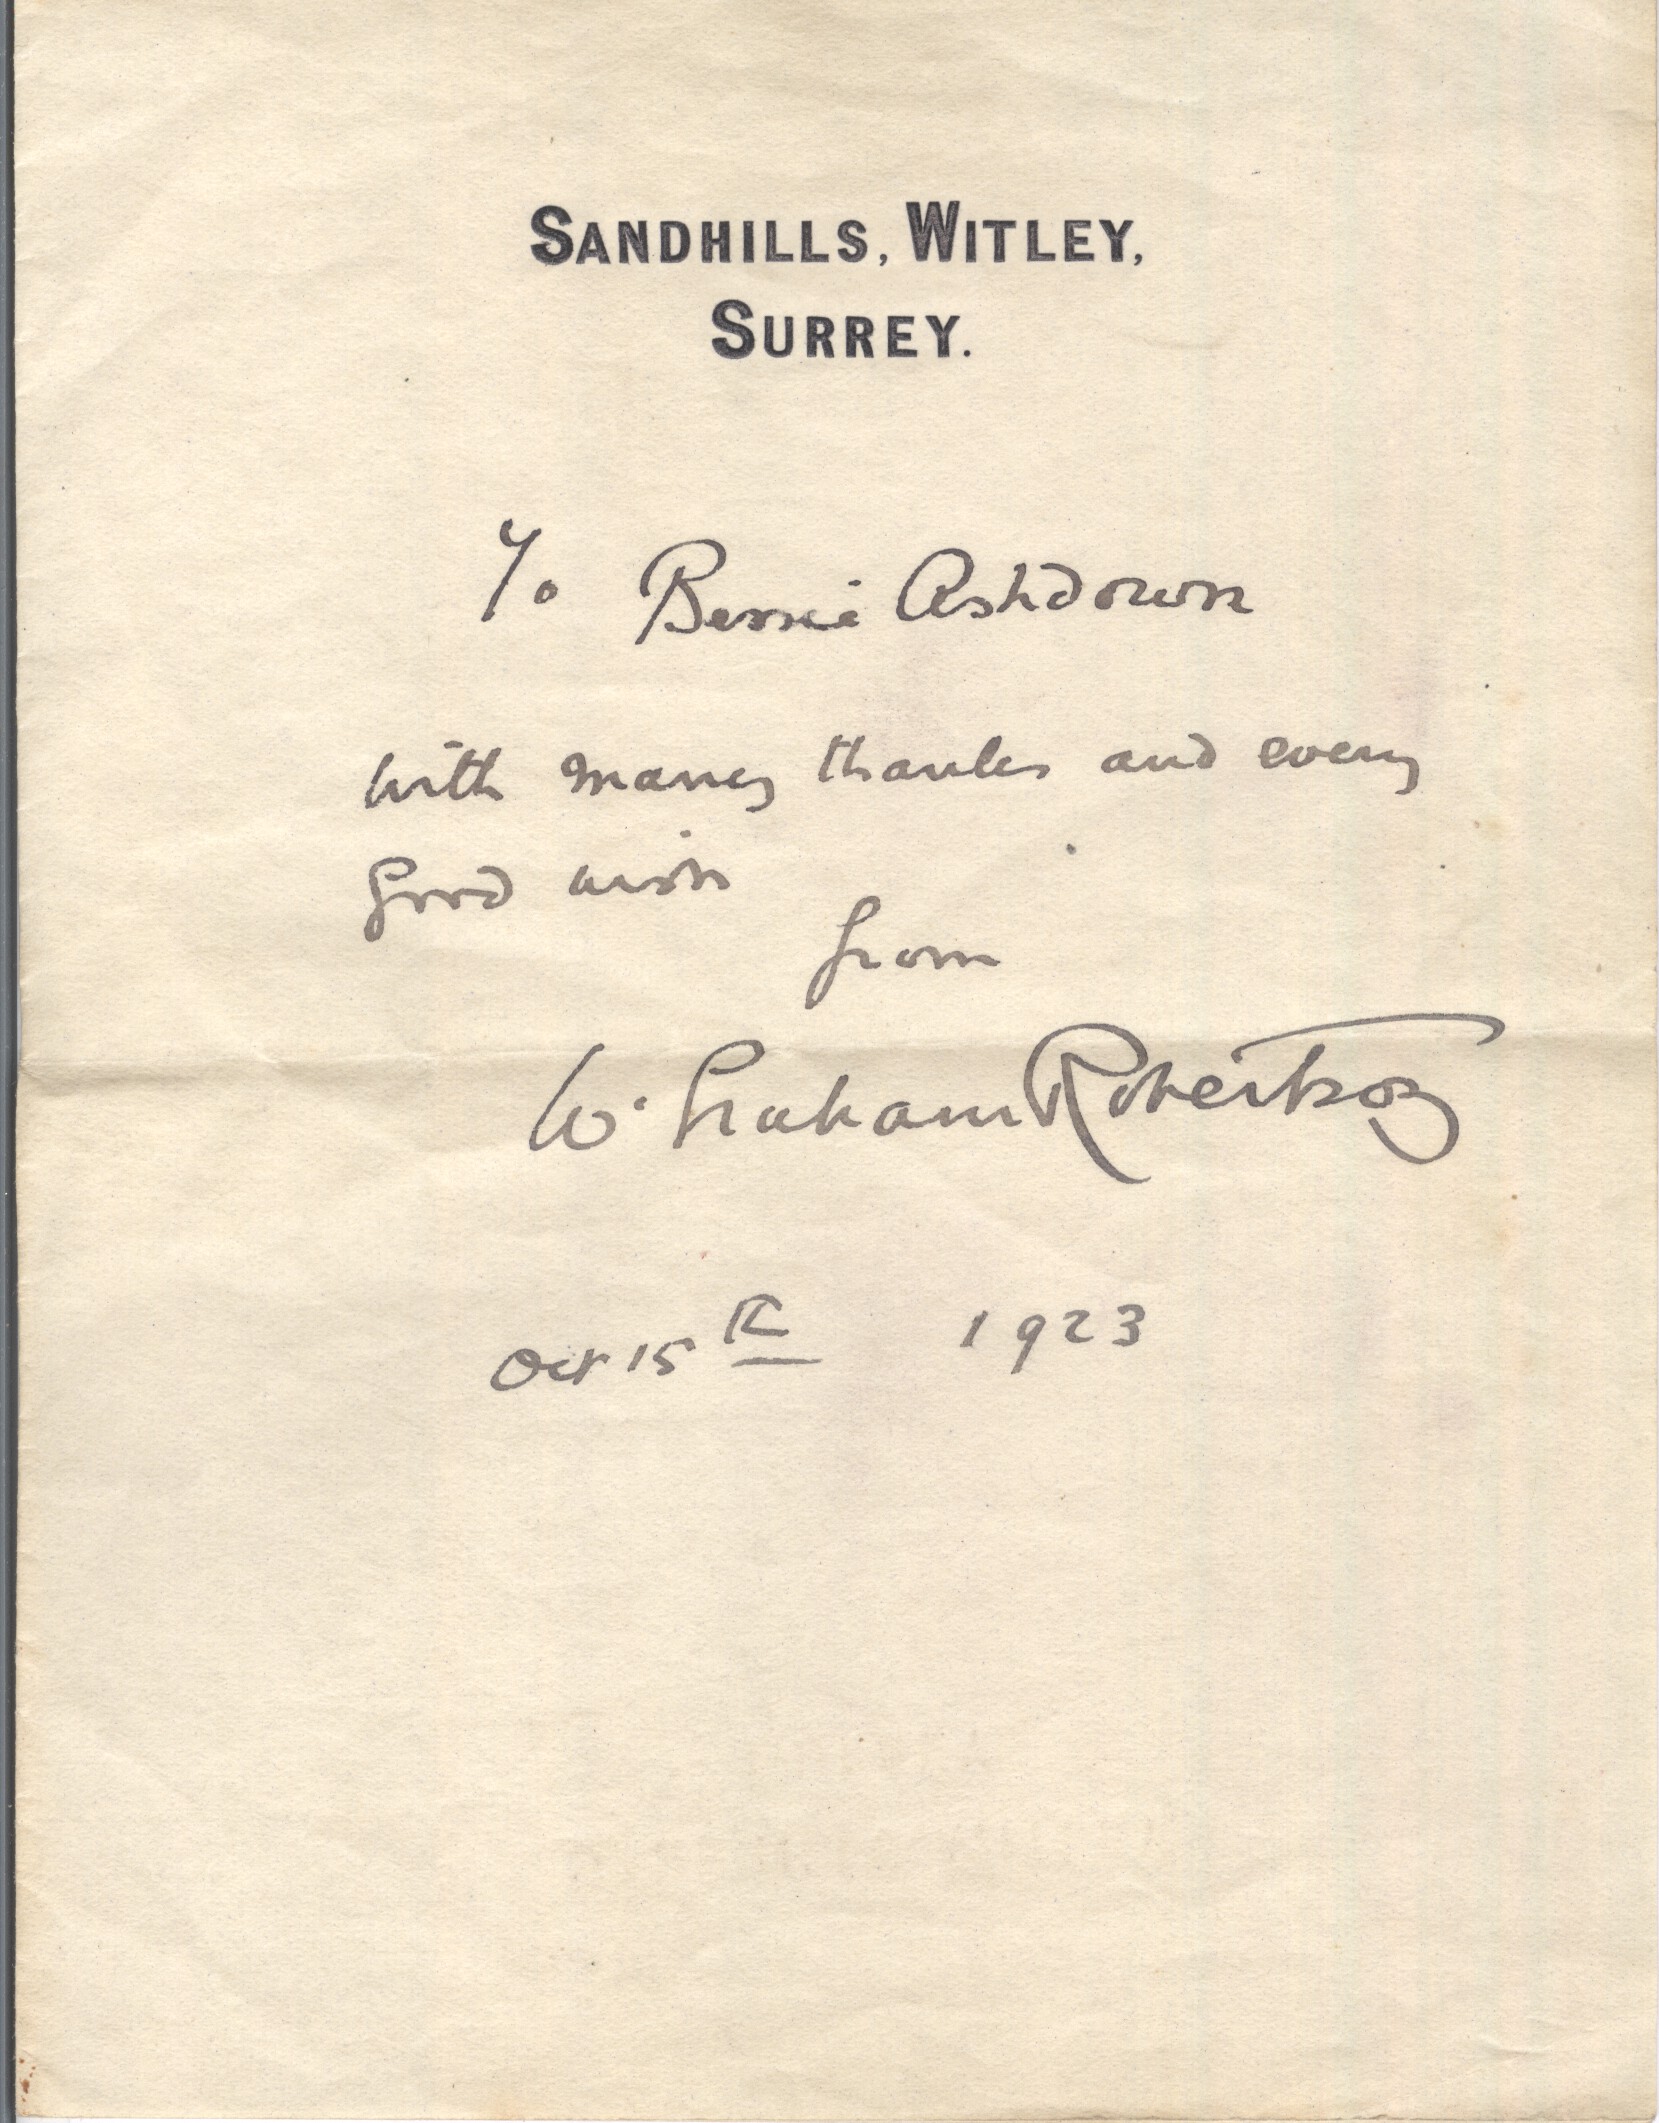 SANDHILLS, WITLEY,
SURREY.
To Bessie Ashdown
with many thanks and every
good wish
from
W. Graham Robertson
Oct 15th 1923